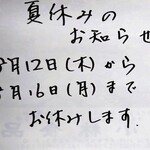 夏休みの
お知らせ
8月12日(木)から
8月16日(月)まで
お休みします.